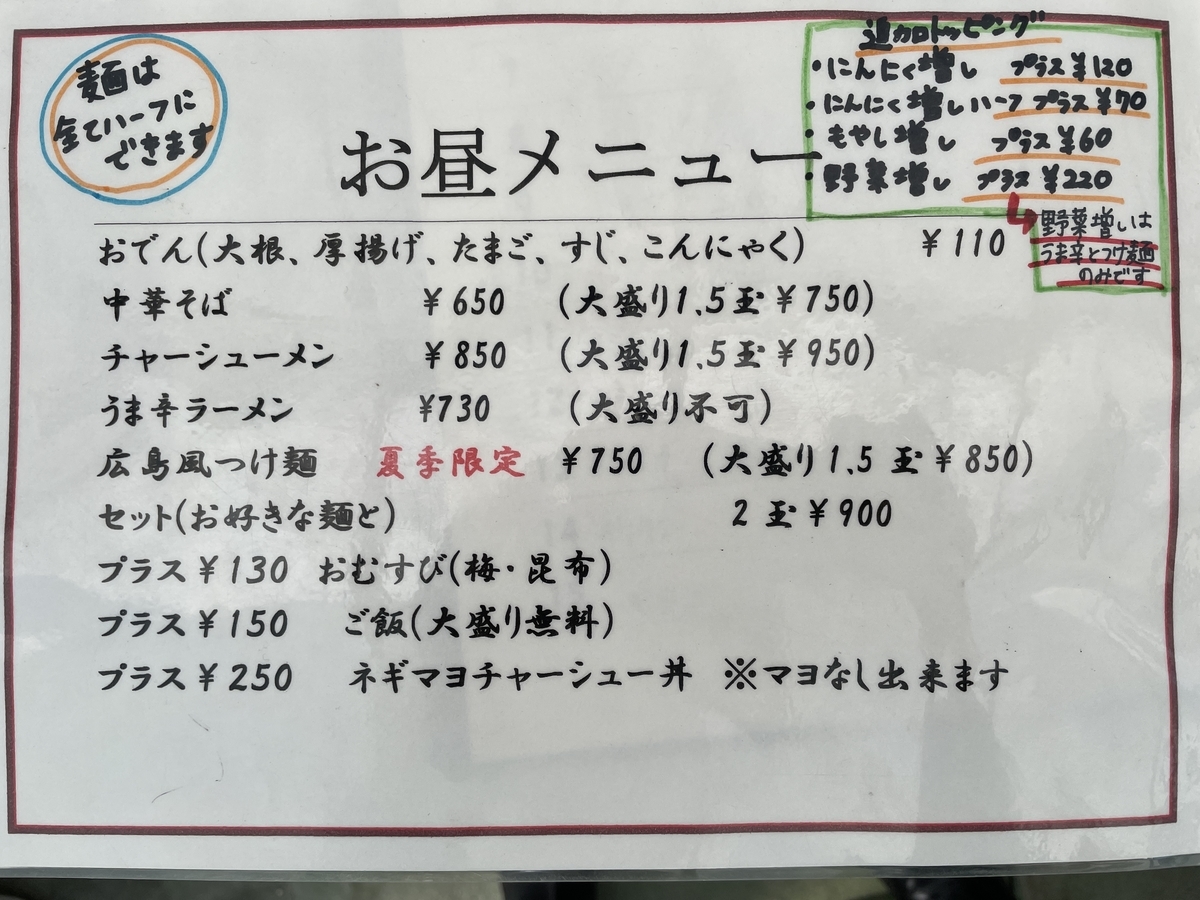 麺は
全てハーフに
できます
追加トッピング
・にんにく増し プラス¥120
・にんにく増しハーフ プラス¥70
・もやし増し プラス¥60
・野菜増し プラス¥220
野菜増しは
うま辛とつけ麺
のみです
お昼メニュー
おでん(大根、厚揚げ、たまご、すじ、こんにゃく) ¥110
中華そば ¥650 (大盛り1.5玉¥750)
チャーシューメン ¥850 (大盛り1.5玉¥950)
うま辛ラーメン ¥730 (大盛り不可)
広島風つけ麺 夏季限定 ¥750 (大盛り1.5玉¥850)
セット(お好きな麺と) 2玉¥900
プラス¥130 おむすび(梅・昆布)
プラス¥150 ご飯(大盛り無料)
プラス¥250 ネギマヨチャーシュー丼 ※マヨなし出来ます